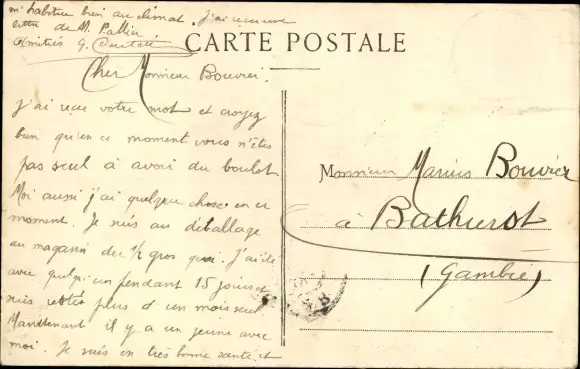 m'habituer bien au climat. J'ai reçu une
lettre de M. Pallier.
Amitiés G.
CARTE POSTALE
Cher Monsieur Bouvier.
J'ai reçu votre mot et croyez
bien qu'en ce moment vous n'êtes
pas seul à avoir du boulot.
Moi aussi j'ai quelque chose en ce
moment. Je suis au déballage
au magasin du 1/2 gros que. J'ai été
avec quelqu'un pendant 15 jours et
suis rester plus d'un mois seul
Maintenant il y a un jeune avec
moi. Je suis en très bonne santé, et
Monsieur Marius Bouvier
à Bathurst
(Gambie)